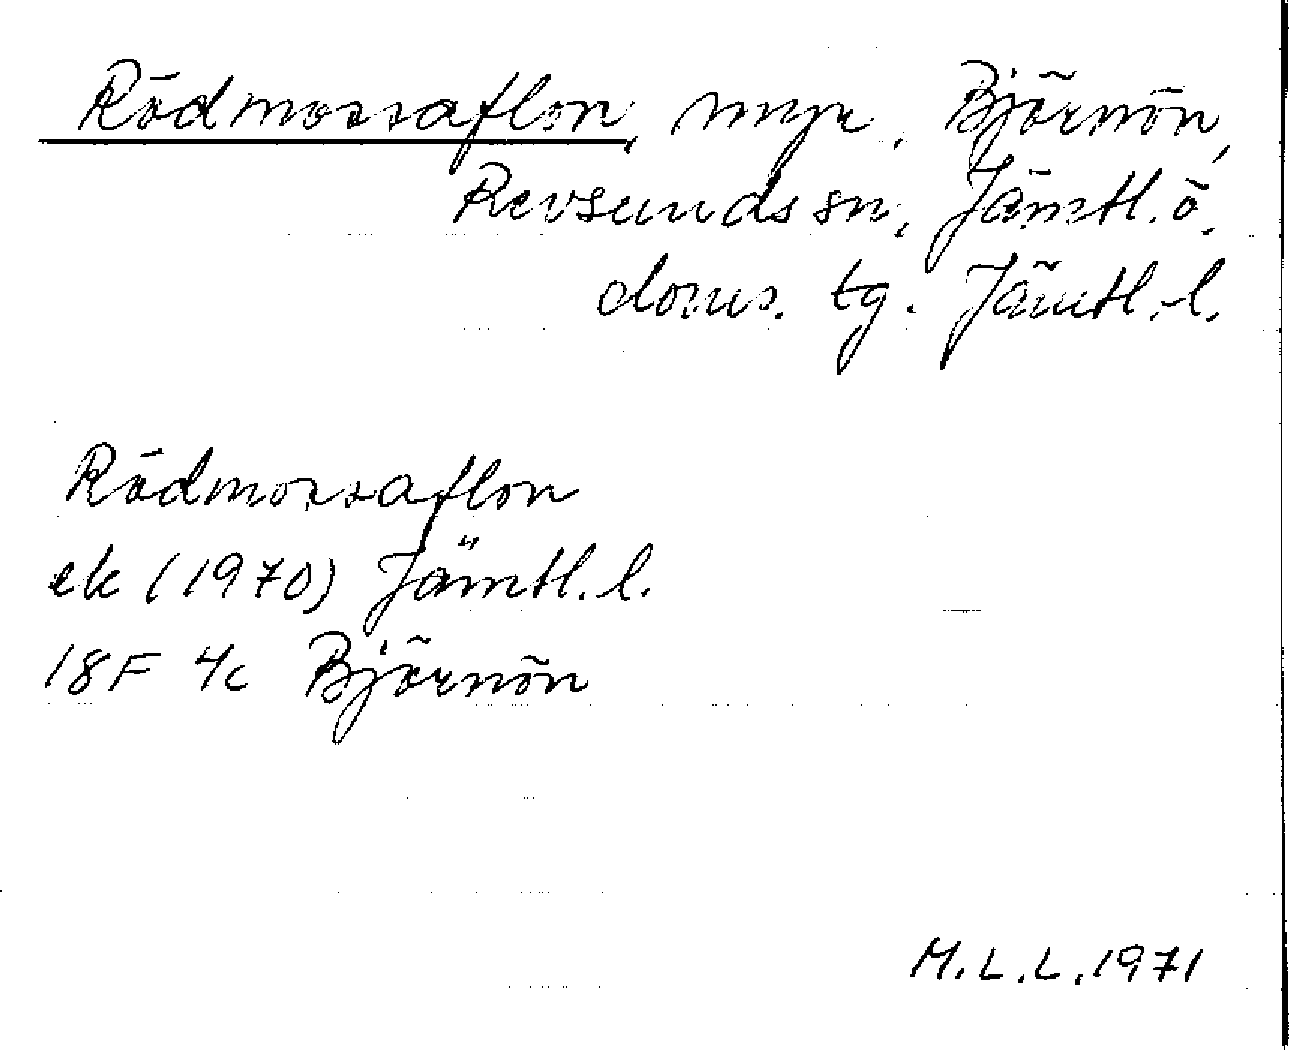 Rödmossaflon, myr, Björnön,
Revsunds sn, Jämtl. ö.
doms. tg. Jämtl. l.
Rödmossaflon
ek (1970) Jämtl. l.
18F 4c Björnön
M.L.L. 1971